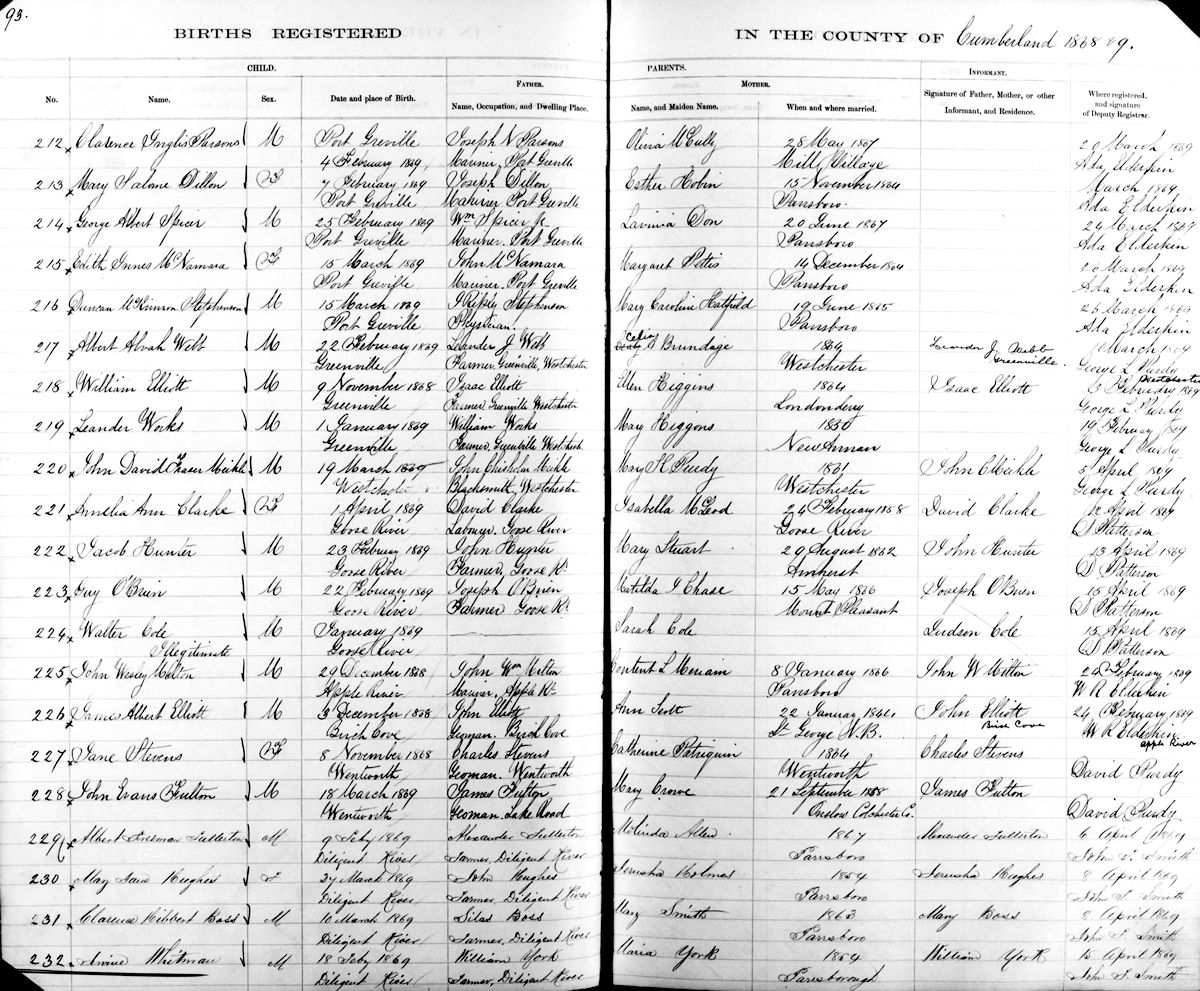 93.
BIRTHS REGISTERED IN THE COUNTY OF Cumberland 1868 & 9.
CHILD. PARENTS.
FATHER. MOTHER. INFORMANT.
No. Name. Sex. Date and place of Birth. Name, Occupation, and Dwelling Place. Name, and Maiden Name. When and where married. Signature of Father, Mother, or other Informant, and Residence. Where registered, and signature of Deputy Registrar.
212 Clarence Inglis Parsons M Port Greville Joseph N Parsons Olivia McCully 28 May 1867 20 March 1869
4 February 1869 Mariner, Port Greville Mill Village Ada Elderkin
213 Mary Salome Dillon F 7 February 1869 Joseph Dillon Esther 15 November 1864 March 1869
Port Greville Mariner Port Greville Parrsboro. Ada Elderkin
214 George Albert Spicer M 25 February 1869 Wm Spicer Jr. Lavinia Don 20 June 1867 24 March 1869
Port Greville Mariner. Port Greville Parrsboro Ada Elderkin
215 Edith Innes McNamara F 15 March 1869 John McNamara Margaret Pettis 14 December 1864 20 March 1869
Port Greville Mariner. Port Greville Parrsboro Ada Elderkin
216 Duncan McKinnon Stephenson M 15 March 1869 Stephenson Mary Caroline Hatfield 19 June 1865 26 March 1869
Port Greville Physician. Parrsboro Ada Elderkin
217 Albert Alvah Webb M 22 February 1869 Leander J Webb Celia Brundage 1864 Leander J Webb March 1869
Greenville Farmer, Greenville, Westchester Westchester Greenville. George L Purdy
Westchester
218 William Elliott M 9 November 1868 Isaac Elliott Ellen Higgins 1864 Isaac Elliott February 1869
Greenville Farmer, Greenville Westchester Londonderry George L Purdy
219 Leander Works M 1 January 1869 William Works Mary Higgons 1850 19 February 1869
Greenville Farmer, Greenville Westchester New Annan George L Purdy.
220 John David Fraser Meikle M 19 March 1869 John Chisholm Meikle Mary H Purdy 1861 John C Meikle 5 April 1869
Westchester Blacksmith, Westchester Westchester George L Purdy.
221 Amelia Ann Clarke F 1 April 1869 David Clarke Isabella McLeod 24 February 1858 David Clarke 12 April 1869
Goose River Labourer, Goose River Goose River D Patterson
222 Jacob Hunter M 23 February 1869 John Hunter Mary Stuart 29 August 1862 John Hunter 13 April 1869
Goose River Farmer, Goose Rr. Amherst D Patterson
223 Guy O'Brien M 22 February 1869 Joseph O'Brien Matilda J Chase 15 May 1866 Joseph O'Brien 15 April 1869
Goose River Farmer Goose Rr. Mount Pleasant D Patterson
224 Walter Cole M January 1869 Sarah Cole Judson Cole 15 April 1869
Illegitimate Goose River D Patterson
225 John Wesley Mitton M 29 December 1868 John Wm Mitton Content L Merriam 8 January 1866 John W Mitton February 1869
Apple River Mariner, Apple Rr. Parrsboro W R Elderkin
226 James Albert Elliott M 3 December 1868 John Elliott Ann Scott 22 January 1844 John Elliott 24 February 1869
Birch Cove Yeoman. Birch Cove St. George N.B. Birch Cove W R Elderkin
Apple River
227 Jane Stevens F 8 November 1868 Charles Stevens Catherine Patriquin 1864 Charles Stevens
Wentworth Yeoman. Wentworth Wentworth David Purdy
228 John Evans Fulton M 18 March 1869 James Fulton Mary Crowe 21 September 1858 James Fulton
Wentworth Yeoman. Lake Road Onslow Colchester Co. David Purdy
229 Albert Freeman Fullerton M 9 Feby 1869 Alexander Fullerton Melinda Allen 1867 Alexander Fullerton 6 April 1869
Diligent River Farmer, Diligent River Parrsboro John S. Smith
230 May Jane Hughes F 27 March 1869 John Hughes Jerusha Holmes 1854 Jerusha Hughes 8 April 1869
Diligent River Farmer, Diligent River Parrsboro John S. Smith
231 Clarence Hibbert Boss M 10 March 1869 Silas Boss Mary Smith 1863 Mary Boss 8 April 1869
Diligent River Farmer, Diligent River Parrsboro John S. Smith
232 Irvine Whitman M 18 Feby 1869 William York Maria York 1854 William York 15 April 1869
Diligent River Farmer, Diligent River Parrsborough John S. Smith